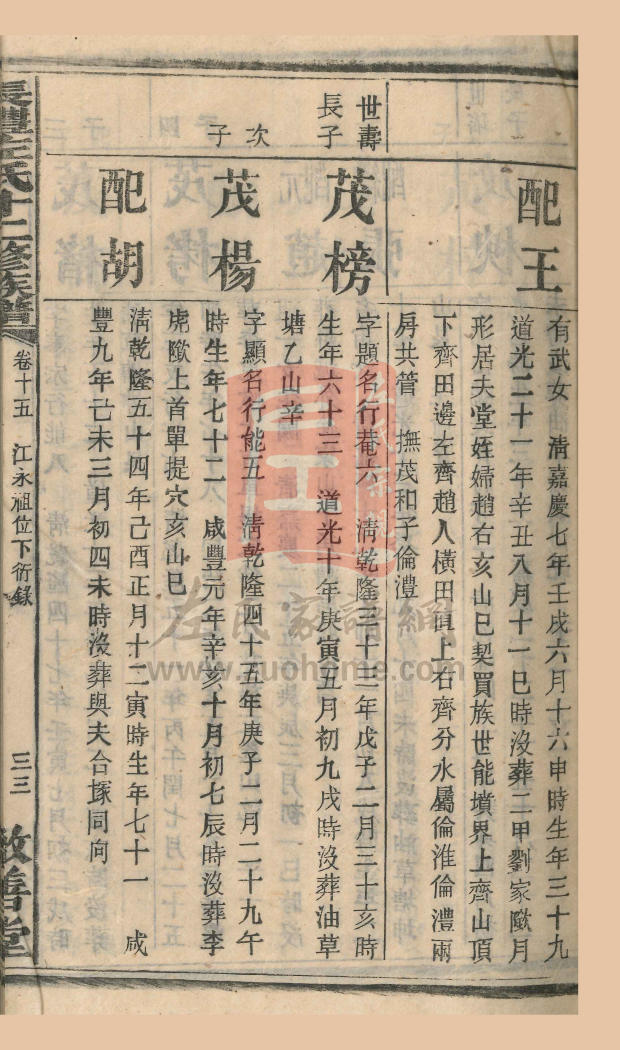 配王
有武女　清嘉慶七年壬戌六月十六申時生年三十九
道光二十一年辛丑八月十一巳時沒葬二甲劉家歐月
形居夫堂姪婦趙右亥山巳契買族世能墳界上齊山頂
下齊田邊左齊趙人橫田值上右齊分水屬倫淮倫澧兩
房共管　撫茂和子倫澧
世壽
長子
茂榜
字題名行菴六　清乾隆三十三年戊子二月三十亥時
生年六十三　道光十年庚寅五月初九戌時沒葬油草
塘乙山辛
次子
茂楊
字顯名行能五　清乾隆四十五年庚子二月二十九午
時生年七十二　咸豐元年辛亥十月初七辰時沒葬李
虎歐上首單提穴亥山巳
配胡
清乾隆五十四年己酉正月十二寅時生年七十一　咸
豐九年己未三月初四未時沒葬與夫合塚同向
長澧左氏十二修族譜
卷十五　江永祖位下衍錄
三三
敦善堂
左氏家譜網
www.zuohome.com